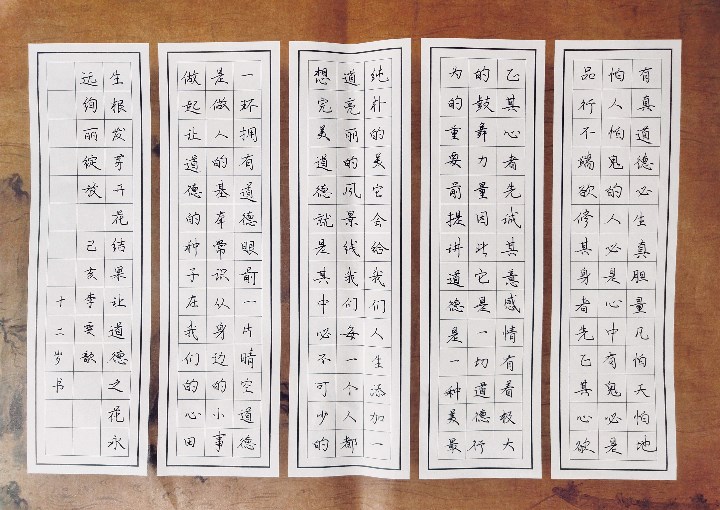 有真道德必生真胆量凡怕天怕地
怕人怕鬼的人必是心中有鬼必是
品行不端欲修其身者先正其心欲
正其心者先诚其意感情有着极大
的鼓舞力量因此它是一切道德行
为的重要前提讲道德是一种美最
纯朴的美它会给我们人生添加一
道亮丽的风景线我们每一个人都
想完美道德就是其中必不可少的
一环拥有道德眼前一片晴空道德
是做人的基本常识从身边的小事
做起让道德的种子在我们的心田
生根发芽开花结果让道德之花永
远绚丽绽放 己亥李奕歆
十二岁书